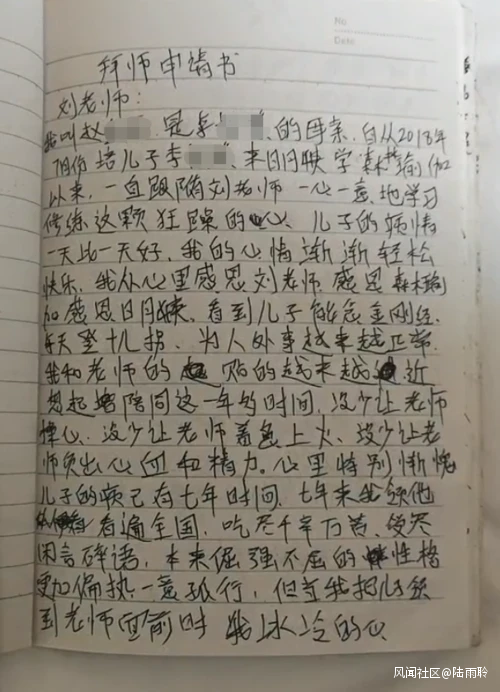 No
Date
拜师申请书
刘老师:
我叫赵 是李 的母亲,自从2018年
7月份 培儿子李 来日月峡 学森林瑜伽
以来,一直跟随刘老师 一心一意地学习
修练这颗狂躁的心、儿子的病情
一天比一天好,我的心情渐渐轻松
快乐,我从心里感恩刘老师 感恩森林瑜
加感恩日月峡、看到儿子能念金刚经、
每天登十八拐、为人处事越来越正常
我和老师的 贴的越来越 近
想起 陪同这一年的时间,没少让老师
操心、没少让老师着急上火、没少让老
师负出心血和精力。心里特别惭愧
儿子的病已有七年时间,七年来我领他
看遍全国,吃尽千辛万苦、受尽
闲言碎语,本来倔强不屈的 性格
更加偏执一意孤行,但当我把儿子领
到老师面前时 我冰冷的心
风闻社区@陆雨聆